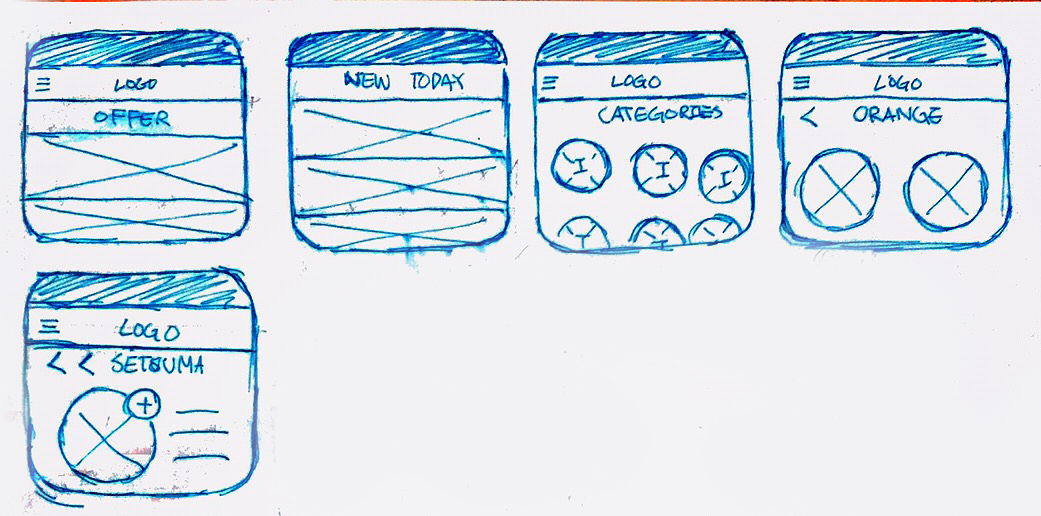 LOGO
OFFER
NEW TODAY
LOGO
CATEGORIES
LOGO
< ORANGE
LOGO
< < SETSUMA